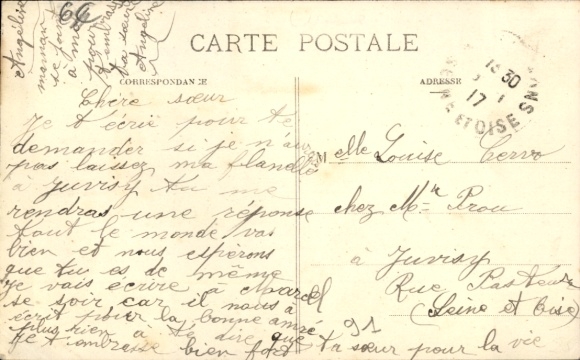 66
Angéline
maman
se joint
à moi
pour
t'embrasser
ta sœur
Angéline
CARTE POSTALE
CORRESPONDANCE
ADRESSE
15 30
17
SEINE ET OISE
Chère sœur
Je t'écrie pour te
demander si je n'ai
pas laissez ma flanelle
à Juvisy tu me
rendras une réponse
tout le monde vas
bien et nous espérons
que tu es de même
Je vais écrire à Marcel
se soir car il nous à
écrit pour la bonne année
plus rien a te dire que
je t'embrasse bien fort ta sœur pour la vie
Melle Louise Cervo
chez Mr Prou
à Juvisy
Rue Pasteur
(Seine et Oise)
91